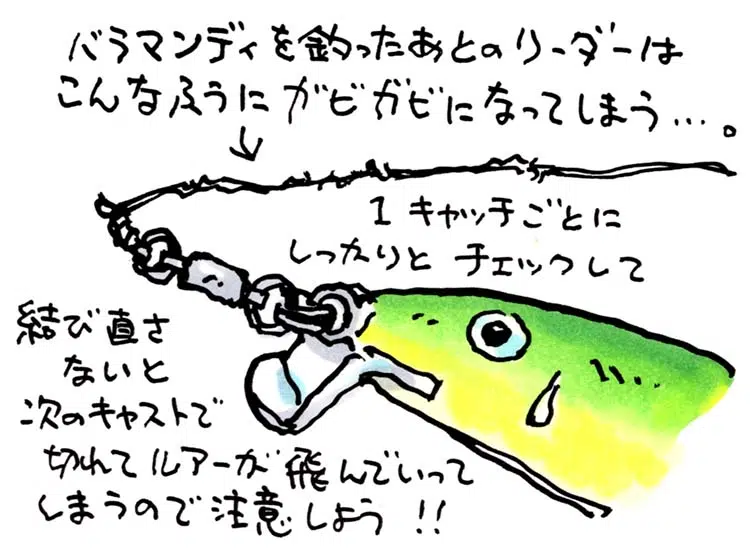 バラマンディを釣ったあとのリーダーは
こんなふうにガビガビになってしまう…。
1キャッチごとに
しっかりとチェックして
結び直さ
ないと
次のキャストで
切れてルアーが飛んでいって
しまうので注意しよう!!